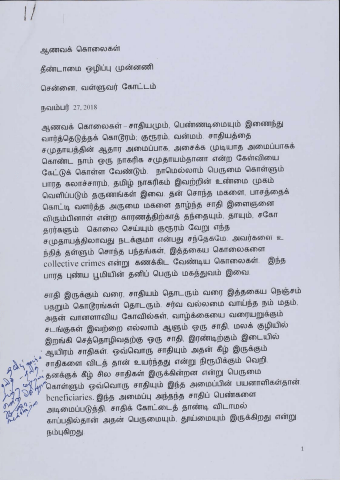 ஆணவக் கொலைகள்
தீண்டாமை ஒழிப்பு முன்னணி
சென்னை, வள்ளுவர் கோட்டம்
நவம்பர் 27,2018
ஆணவக் கொலைகள் - சாதியமும், பெண்ணடிமையும் இணைந்து
வார்த்தெடுத்தக் கொடூரம்; குரூரம், வன்மம். சாதியத்தை
சமுதாயத்தின் ஆதார அமைப்பாக, அசைக்க முடியாத அமைப்பாகக்
கொண்ட நாம் ஒரு நாகரிக சமுதாயம்தானா என்ற கேள்வியை
கேட்டுக் கொள்ள வேண்டும். நாமெல்லாம் பெருமை கொள்ளும்
பாரத கலாச்சாரம், தமிழ் நாகரிகம் இவற்றின் உண்மை முகம்
வெளிப்படும் தருணங்கள் இவை. தன் சொந்த மகளை, பாசத்தைக்
கொட்டி வளர்த்த அருமை மகளை தாழ்ந்த சாதி இளைஞனை
விரும்பினாள் என்ற காரணத்திற்காகத் தந்தையும், தாயும், சகோ
தரர்களும் கொலை செய்யும் குரூரம் வேறு எந்த
சமுதாயத்திலாவது நடக்குமா என்பது சந்தேகமே. அவர்களை உ
ந்தித் தள்ளும் சொந்த பந்தங்கள். இத்தகைய கொலைகளை
collective crimes என்று கணக்கிட வேண்டிய கொலைகள். இந்த
பாரத புண்ய பூமியின் தனிப் பெரும் மகத்துவம் இவை.
சாதி இருக்கும் வரை, சாதியம் தொடரும் வரை இத்தகைய நெஞ்சம்
பதறும் கொடூரங்கள் தொடரும். சர்வ வல்லமை வாய்ந்த நம் மதம்,
அதன் வானளாவிய கோவில்கள், வாழ்க்கையை வரையறுக்கும்
சடங்குகள் இவற்றை எல்லாம் ஆளும் ஒரு சாதி, மலக் குழியில்
இறங்கி செத்தொழிவதற்கு ஒரு சாதி. இரண்டிற்கும் இடையில்
ஆயிரம் சாதிகள். ஒவ்வொரு சாதியும் அதன் கீழ் இருக்கும்
சாதிகளை விடத் தான் உயர்ந்தது என்று நிரூபிக்கும் வெறி.
தனக்குக் கீழ் சில சாதிகள் இருக்கின்றன என்று பெருமை
கொள்ளும் ஒவ்வொரு சாதியும் இந்த அமைப்பின் பயனாளிகள்தான்
beneficiaries. இந்த அமைப்பு அந்தந்த சாதிப் பெண்களை
அடிமைப்படுத்தி, சாதிக் கோட்டைத் தாண்டி விடாமல்
காப்பதில்தான் அதன் பெருமையும், தூய்மையும் இருக்கிறது என்று
நம்புகிறது.
1